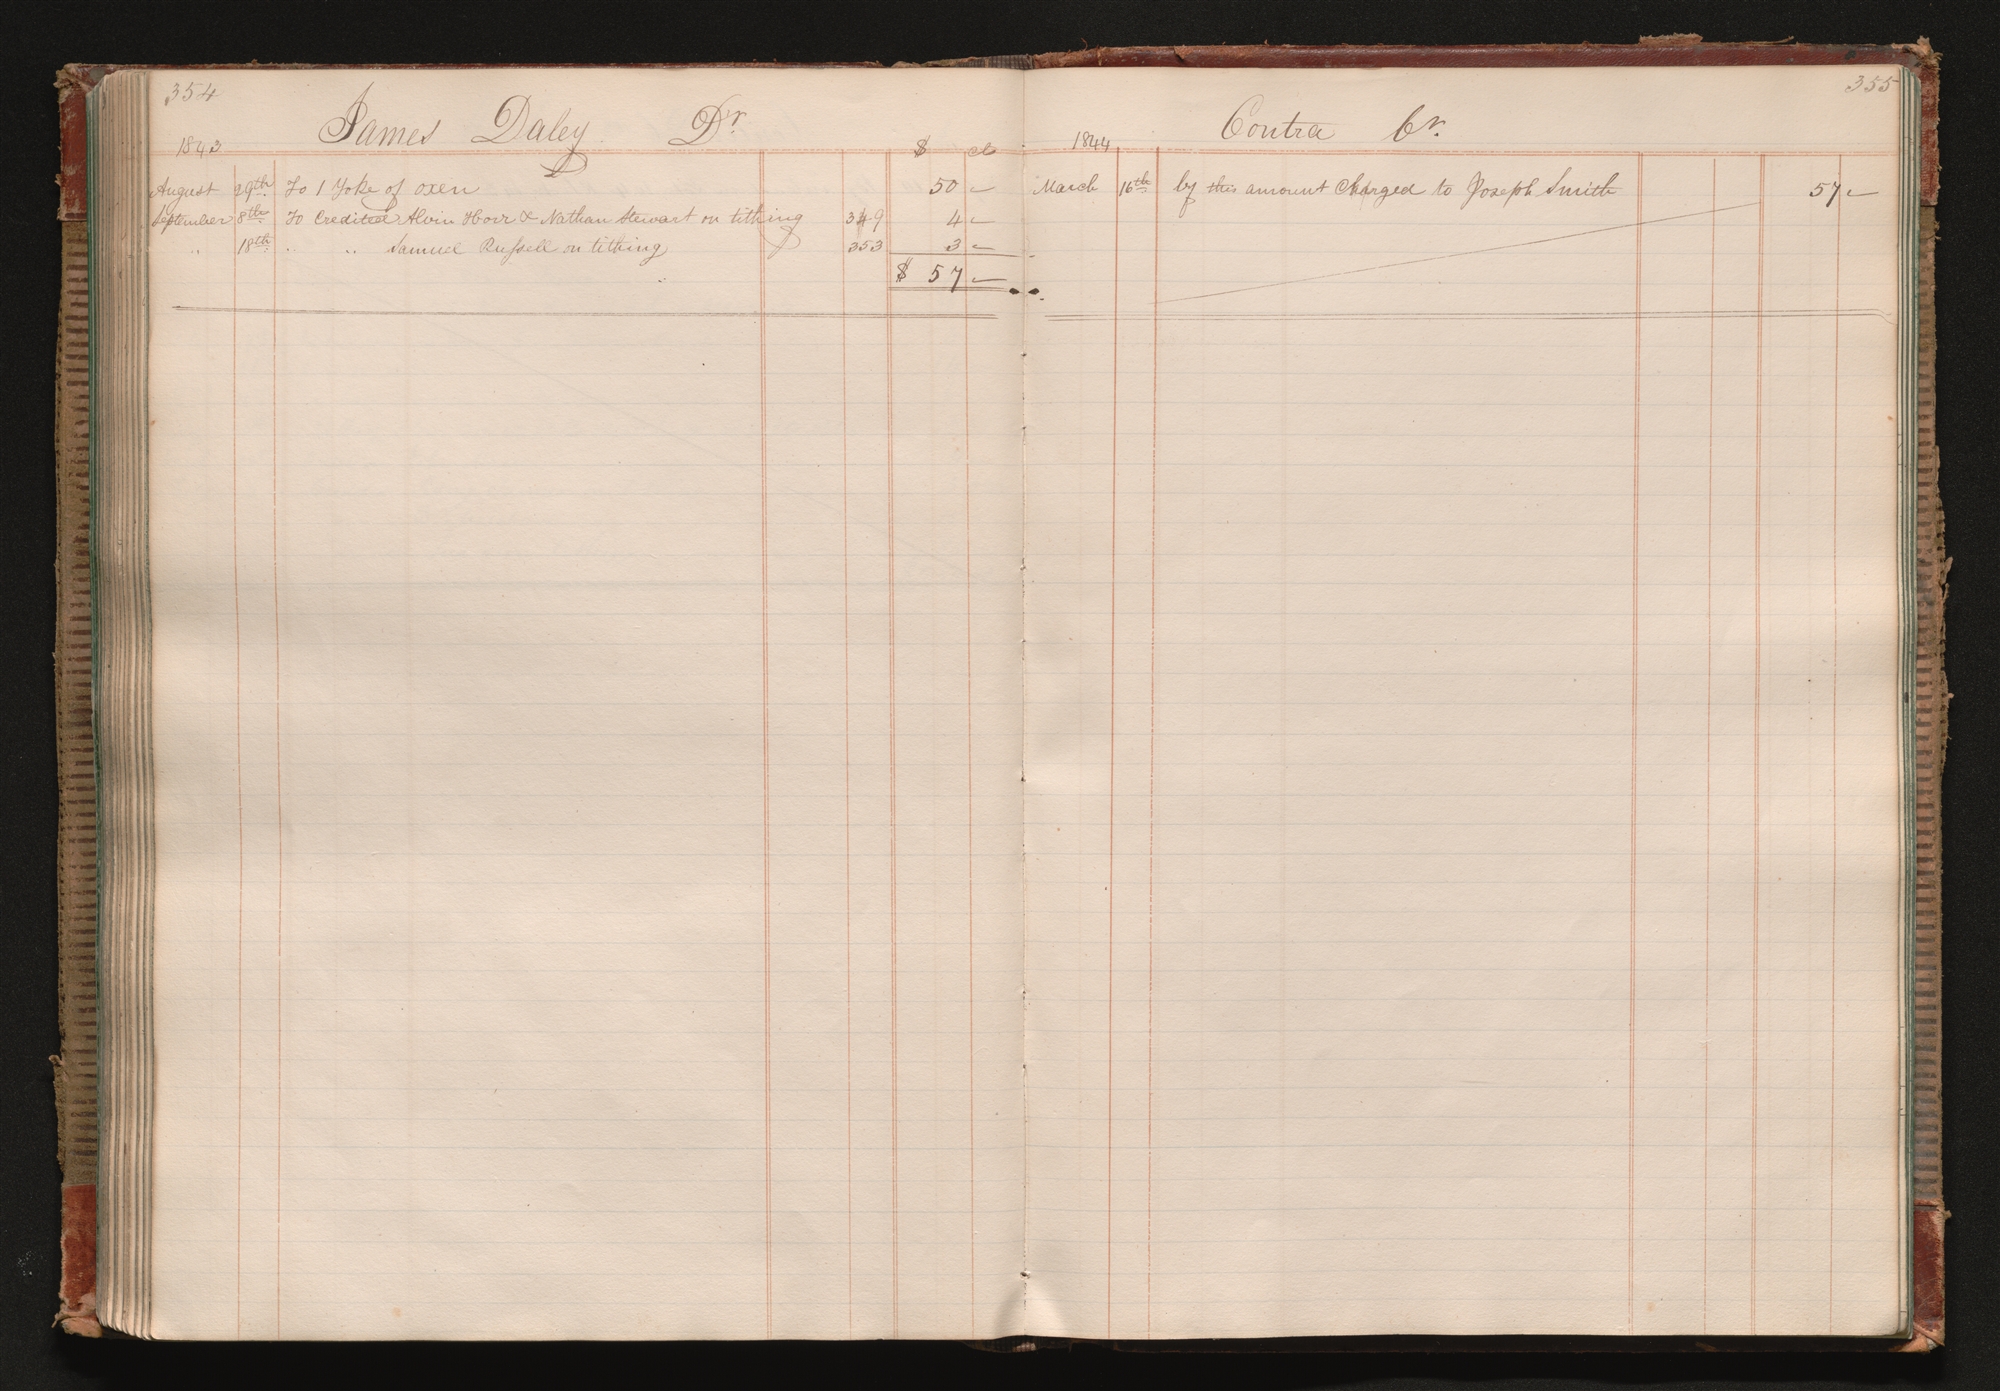 354
James Daley Dr
1843 $ cts
August 29th To 1 Yoke of oxen 50 –
September 8th To Credited Alvin Horr & Nathan Stewart on tithing 349 4 –
" 18th " " Samuel Russell on tithing 353 3 –
$ 57 –
355
Contra Cr.
1844
March 16th by this amount Charged to Joseph Smith 57 –